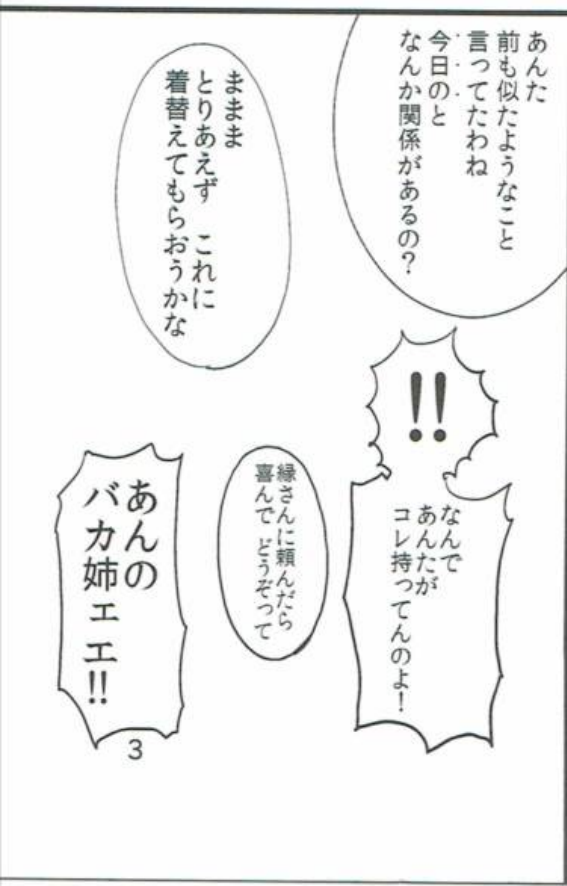 あんた
前も似たようなこと
言ってたわね
今日のと
なんか関係があるの？
ままま
とりあえず　これに
着替えてもらおうかな
!!
なんで
あんたが
コレ持ってんのよ！
縁さんに頼んだら
喜んで　どうぞって
あんの
バカ姉ェエ!!
3